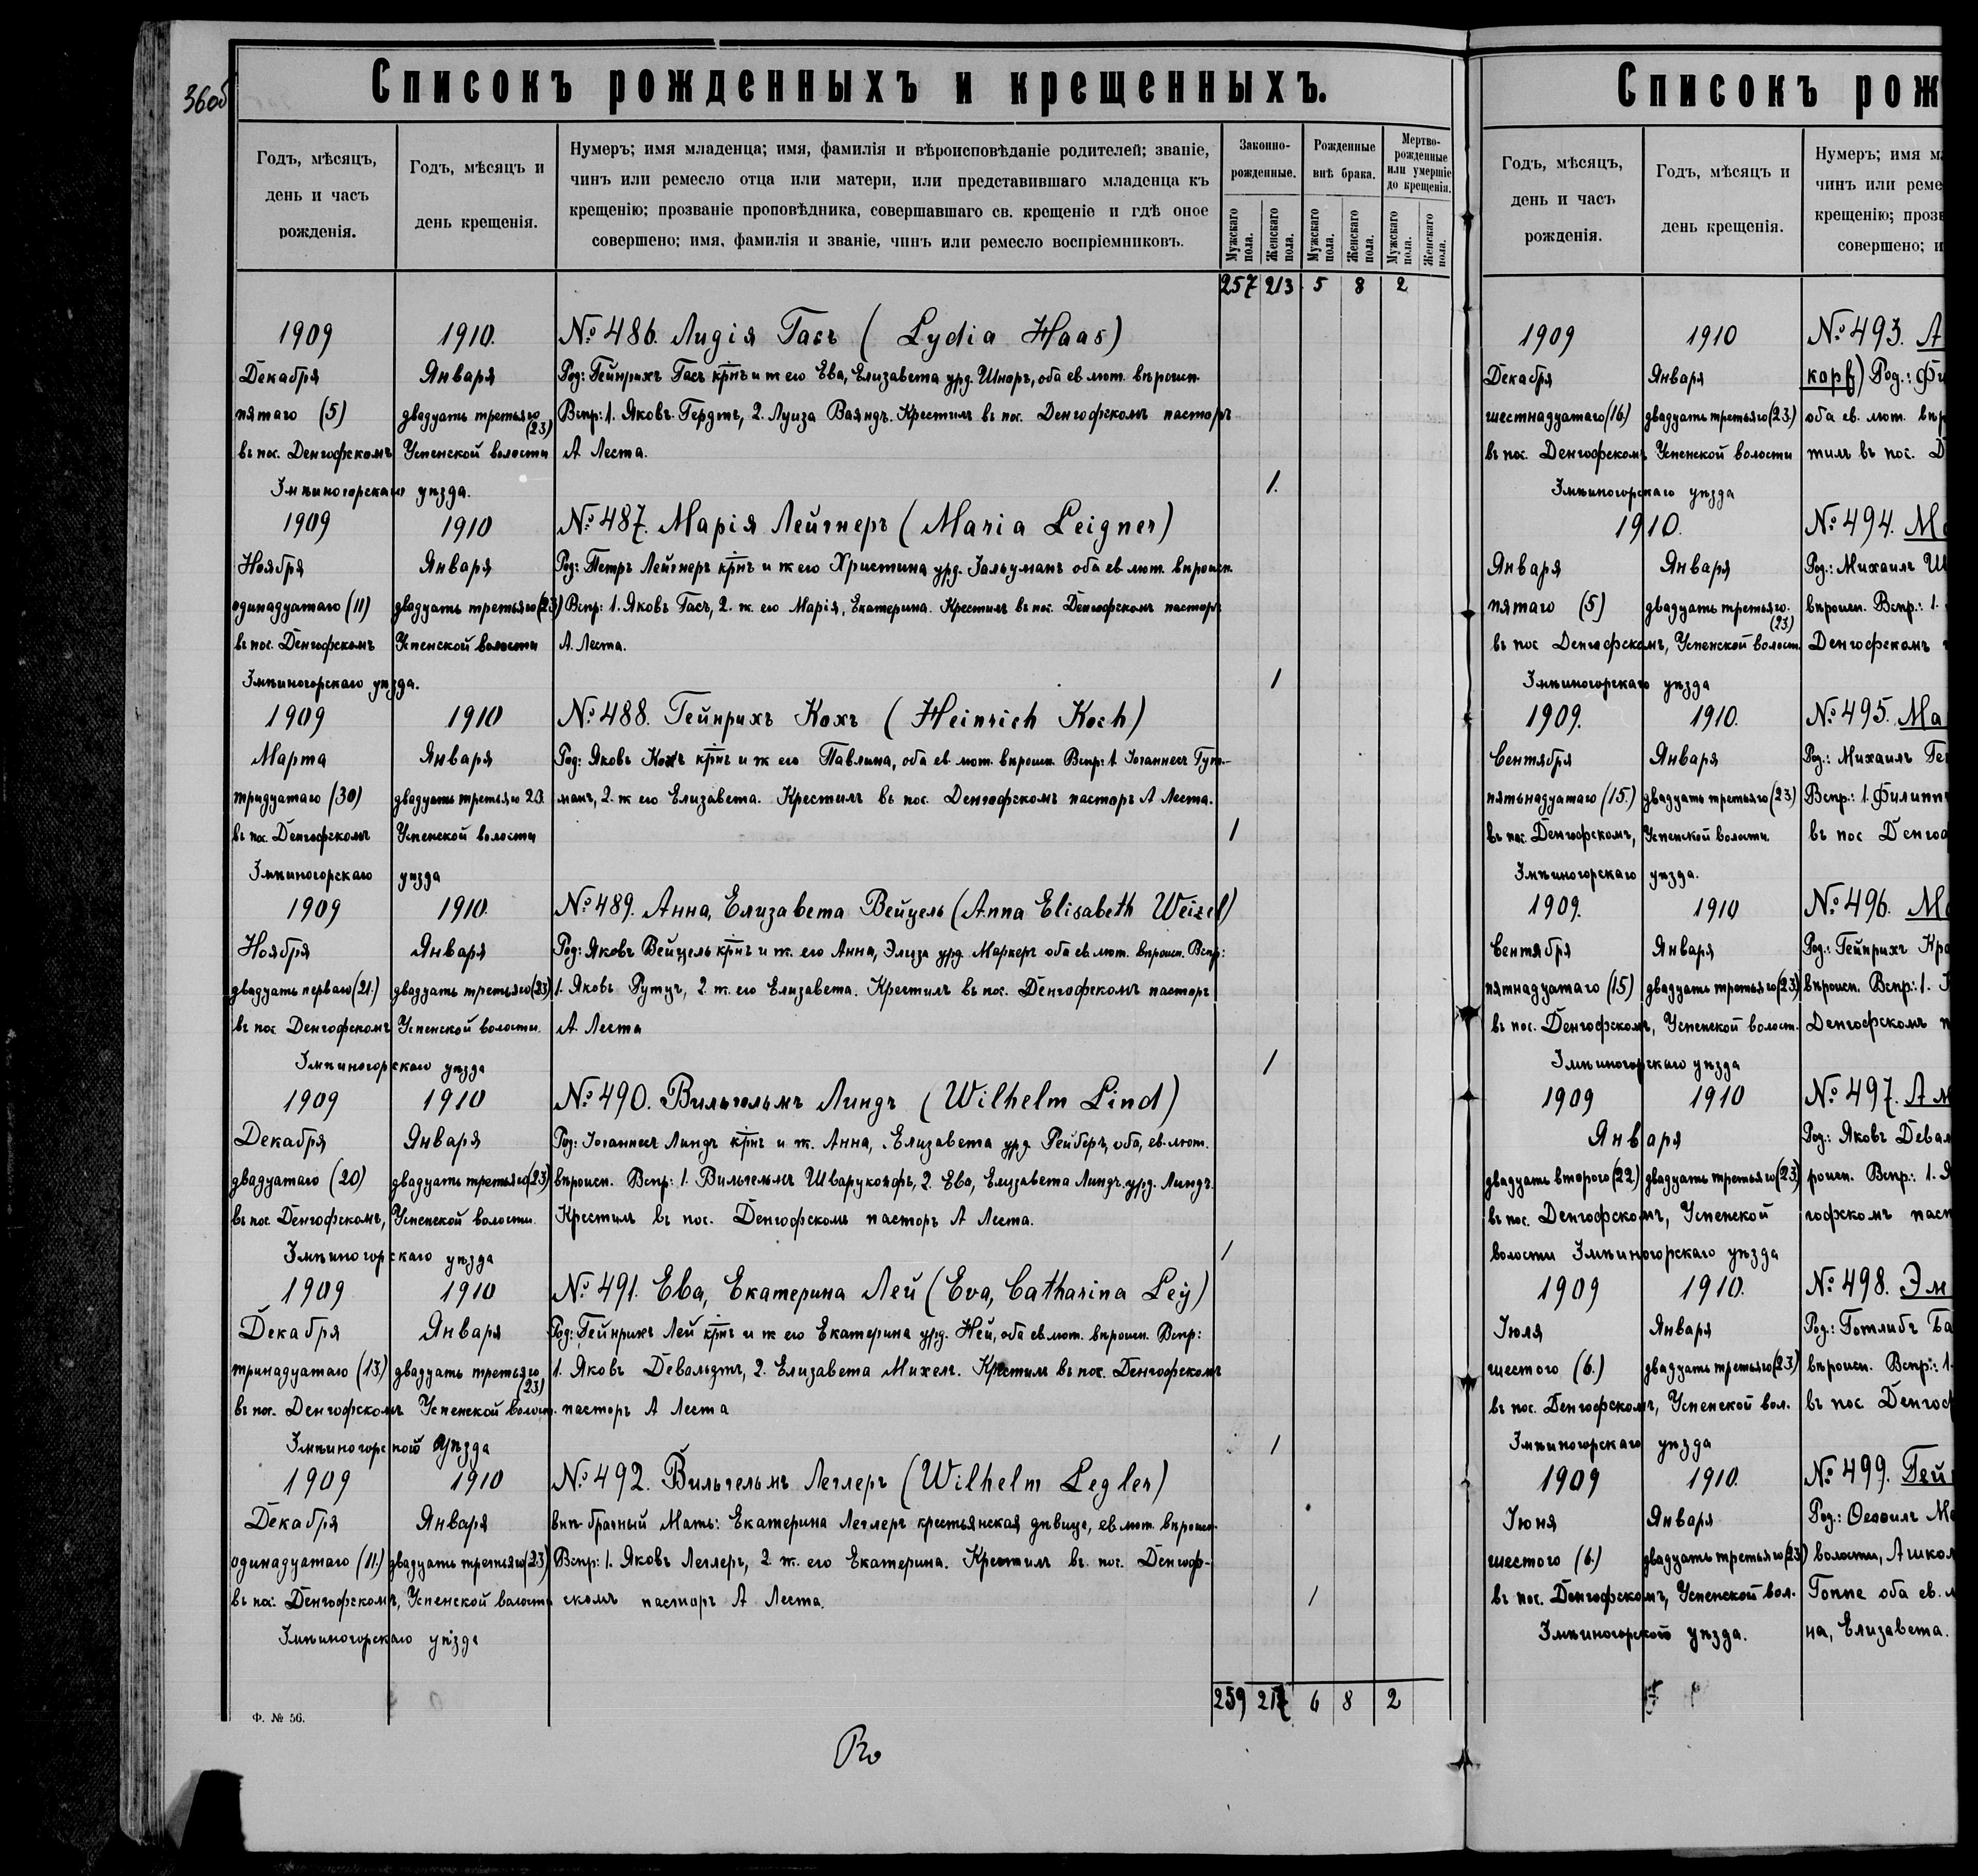 36об
Списокъ рожденныхъ и крещенныхъ.
Годъ, мѣсяцъ, день и часъ рожденія.
Годъ, мѣсяцъ и день крещенія.
Нумеръ; имя младенца; имя, фамилія и вѣроисповѣданіе родителей; званіе,
чинъ или ремесло отца или матери, или представившаго младенца къ
крещенію; прозваніе проповѣдника, совершавшаго св. крещеніе и гдѣ оное
совершено; имя, фамилія и званіе, чинъ или ремесло воспріемниковъ.
Законно-рожденные.
Рожденные внѣ брака.
Мертво-рожденные или умершіе до крещенія.
Мужскаго пола. Женскаго пола. Мужскаго пола. Женскаго пола. Мужскаго пола. Женскаго пола.
257 213 5 8 2
1909 1910. № 486. Лидія Гасъ (Lydia Haas)
Декабря Января Род: Гейнрихъ Гасъ крнъ и ж его Ева, Елизавета урд. Шноръ, оба ев лют. вѣроисп.
пятаго (5) двадцать третьяго (23) Вспр: 1. Яковъ Гердтъ, 2. Луиза Ваяндъ. Крестилъ въ пос. Денгофскомъ пасторъ
въ пос. Денгофскомъ Успенской волости А Леста.
Змѣиногорскаго уѣзда. 1.
1909 1910 № 487. Марія Лейгнеръ (Maria Leigner)
Ноября Января Род: Петръ Лейгнеръ крнъ и ж его Христина урд. Зальцманъ оба ев лют. вѣроисп.
одинадцатаго (11) двадцать третьяго (23) Вспр: 1. Яковъ Гасъ, 2. ж. его Марія, Екатерина. Крестилъ въ пос. Денгофскомъ пасторъ
въ пос. Денгофскомъ Успенской волости А. Леста.
Змѣиногорскаго уѣзда. 1
1909 1910 № 488. Гейнрихъ Кохъ (Heinrich Koch)
Марта Января Род: Яковъ Кохъ крнъ и ж его Павлина, оба ев лют. вѣроисп. Вспр: 1. Іоганнесъ Гут-
тридцатаго (30) двадцать третьяго 23. манъ, 2. ж его Елизавета. Крестилъ въ пос. Денгофскомъ пасторъ А Леста.
въ пос. Денгофскомъ Успенской волости 1
Змѣиногорскаго уѣзда
1909 1910. № 489. Анна, Елизавета Вейцель (Anna Elisabeth Weizel)
Ноября Января Род: Яковъ Вейцель крнъ и ж. его Анна, Элиза урд. Маркеръ оба ев. лют. вѣроисп. Вспр:
двадцать перваго (21.) двадцать третьяго (23) 1. Яковъ Рутцъ, 2. ж. его Елизавета. Крестилъ въ пос. Денгофскомъ пасторъ
въ пос Денгофскомъ Успенской волости. А Леста
Змѣиногорскаго уѣзда 1
1909 1910 № 490. Вильгельмъ Линдъ (Wilhelm Lind)
Декабря Января Род: Іоганнесъ Линдъ крнъ и ж. Анна, Елизавета урд. Рейберъ, оба, ев. лют.
двадцатаго (20) двадцать третьяго (23) вѣроисп. Вспр: 1. Вильгельмъ Шварцкопфъ, 2. Ева, Елизавета Линдъ урд. Линдъ.
въ пос. Денгофскомъ, Успенской волости. Крестилъ въ пос. Денгофскомъ пасторъ А Леста.
Змѣиногорскаго уѣзда 1
1909 1910 № 491. Ева, Екатерина Лей (Eva, Catharina Ley)
Декабря Января Род: Гейнрихъ Лей крнъ и ж его Екатерина урд. Ней, оба ев. лют. вѣроисп. Вспр:
тринадцатаго (13.) двадцать третьяго (23) 1. Яковъ Девальдтъ, 2. Елизавета Михель. Крестилъ въ пос. Денгофскомъ
въ пос. Денгофскомъ Успенской волост. пасторъ А Леста
Змѣиногорской уѣзда 1
1909 1910 № 492. Вильгельмъ Леглеръ (Wilhelm Legler)
Декабря Января внѣ-брачный Мать: Екатерина Леглеръ крестьянская дѣвица, ев. лют. вѣроисп.
одинадцатаго (11.) двадцать третьяго (23) Вспр: 1. Яковъ Леглеръ, 2 ж. его Екатерина. Крестилъ въ пос. Денгоф-
въ пос. Денгофскомъ, Успенской волости скомъ пасторъ А Леста. 1
Змѣиногорскаго уѣзда
259 217 6 8 2
Ф. № 56.
Списокъ рож
Годъ, мѣсяцъ, день и часъ рожденія.
Годъ, мѣсяцъ и день крещенія.
Нумеръ; имя м
чинъ или реме
крещенію; прозв
совершено; и
1909 1910 № 493. А
Декабря Января корf) Род.: Фи
шестнадцатаго (16) двадцать третьяго (23.) оба ев. лют. вѣр
въ пос. Денгофскомъ Успенской волости тилъ въ пос. Д
Змѣиногорскаго уѣзда
1910. № 494. Ма
Января Января Род.: Михаилъ Ш
пятаго (5) двадцать третьяго. (23.) вѣроисп. Вспр.: 1.
въ пос Денгофскомъ, Успенской волост. Денгофскомъ
Змѣиногорскаго уѣзда
1909. 1910. № 495. Ма
Сентября Января Род.: Михаилъ Ге
пятьнадцатаго (15.) двадцать третьяго (23) Вспр.: 1. Филипп
въ пос. Денгофскомъ, Успенской волости. въ пос Денго
Змѣиногорскаго уѣзда.
1909. 1910 № 496. Ма
Сентября Января Род.: Гейнрихъ Кра
пятнадцатаго (15) двадцать третьяго (23.) вѣроисп. Вспр.: 1.
въ пос. Денгофскомъ, Успенской волост. Денгофскомъ п
Змѣиногорскаго уѣзда
1909 1910 № 497. Ам
Января Род.: Яковъ Девал
двадцать второго (22.) двадцать третьяго (23) роисп. Вспр.: 1. Я
въ пос. Денгофскомъ, Успенской гофскомъ паст
волости Змѣиногорскаго уѣзда
1909 1910. № 498. Эм
Іюля Января Род.: Готлибъ Ба
шестого (6.) двадцать третьяго (23) вѣроисп. Вспр.: 1.
въ пос. Денгофскомъ, Успенской вол. въ пос Денгоф
Змѣиногорскаго уѣзда
1909 1910. № 499. Гей
Іюня Января Род.: Ѳеофилъ Ма
шестого (6.) двадцать третьяго (23) волости, Ашкол
въ пос. Денгофскомъ, Успенской вол. Гоппе оба ев. л
Змѣиногорской уѣзда. на, Елизавета.